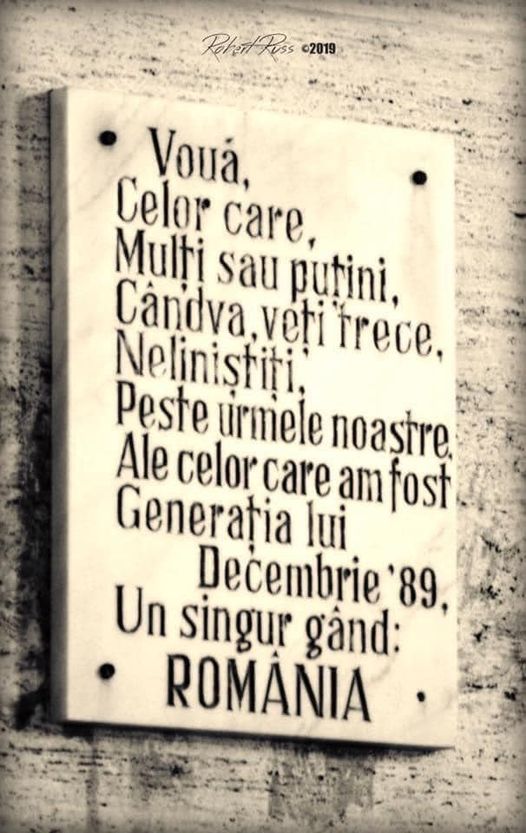 Robert Russ ©2019
Vouă,
Celor care,
Mulți sau puțini,
Cândva, veți trece,
Neliniștiți,
Peste urmele noastre,
Ale celor care am fost
Generația lui
Decembrie '89,
Un singur gând:
ROMÂNIA